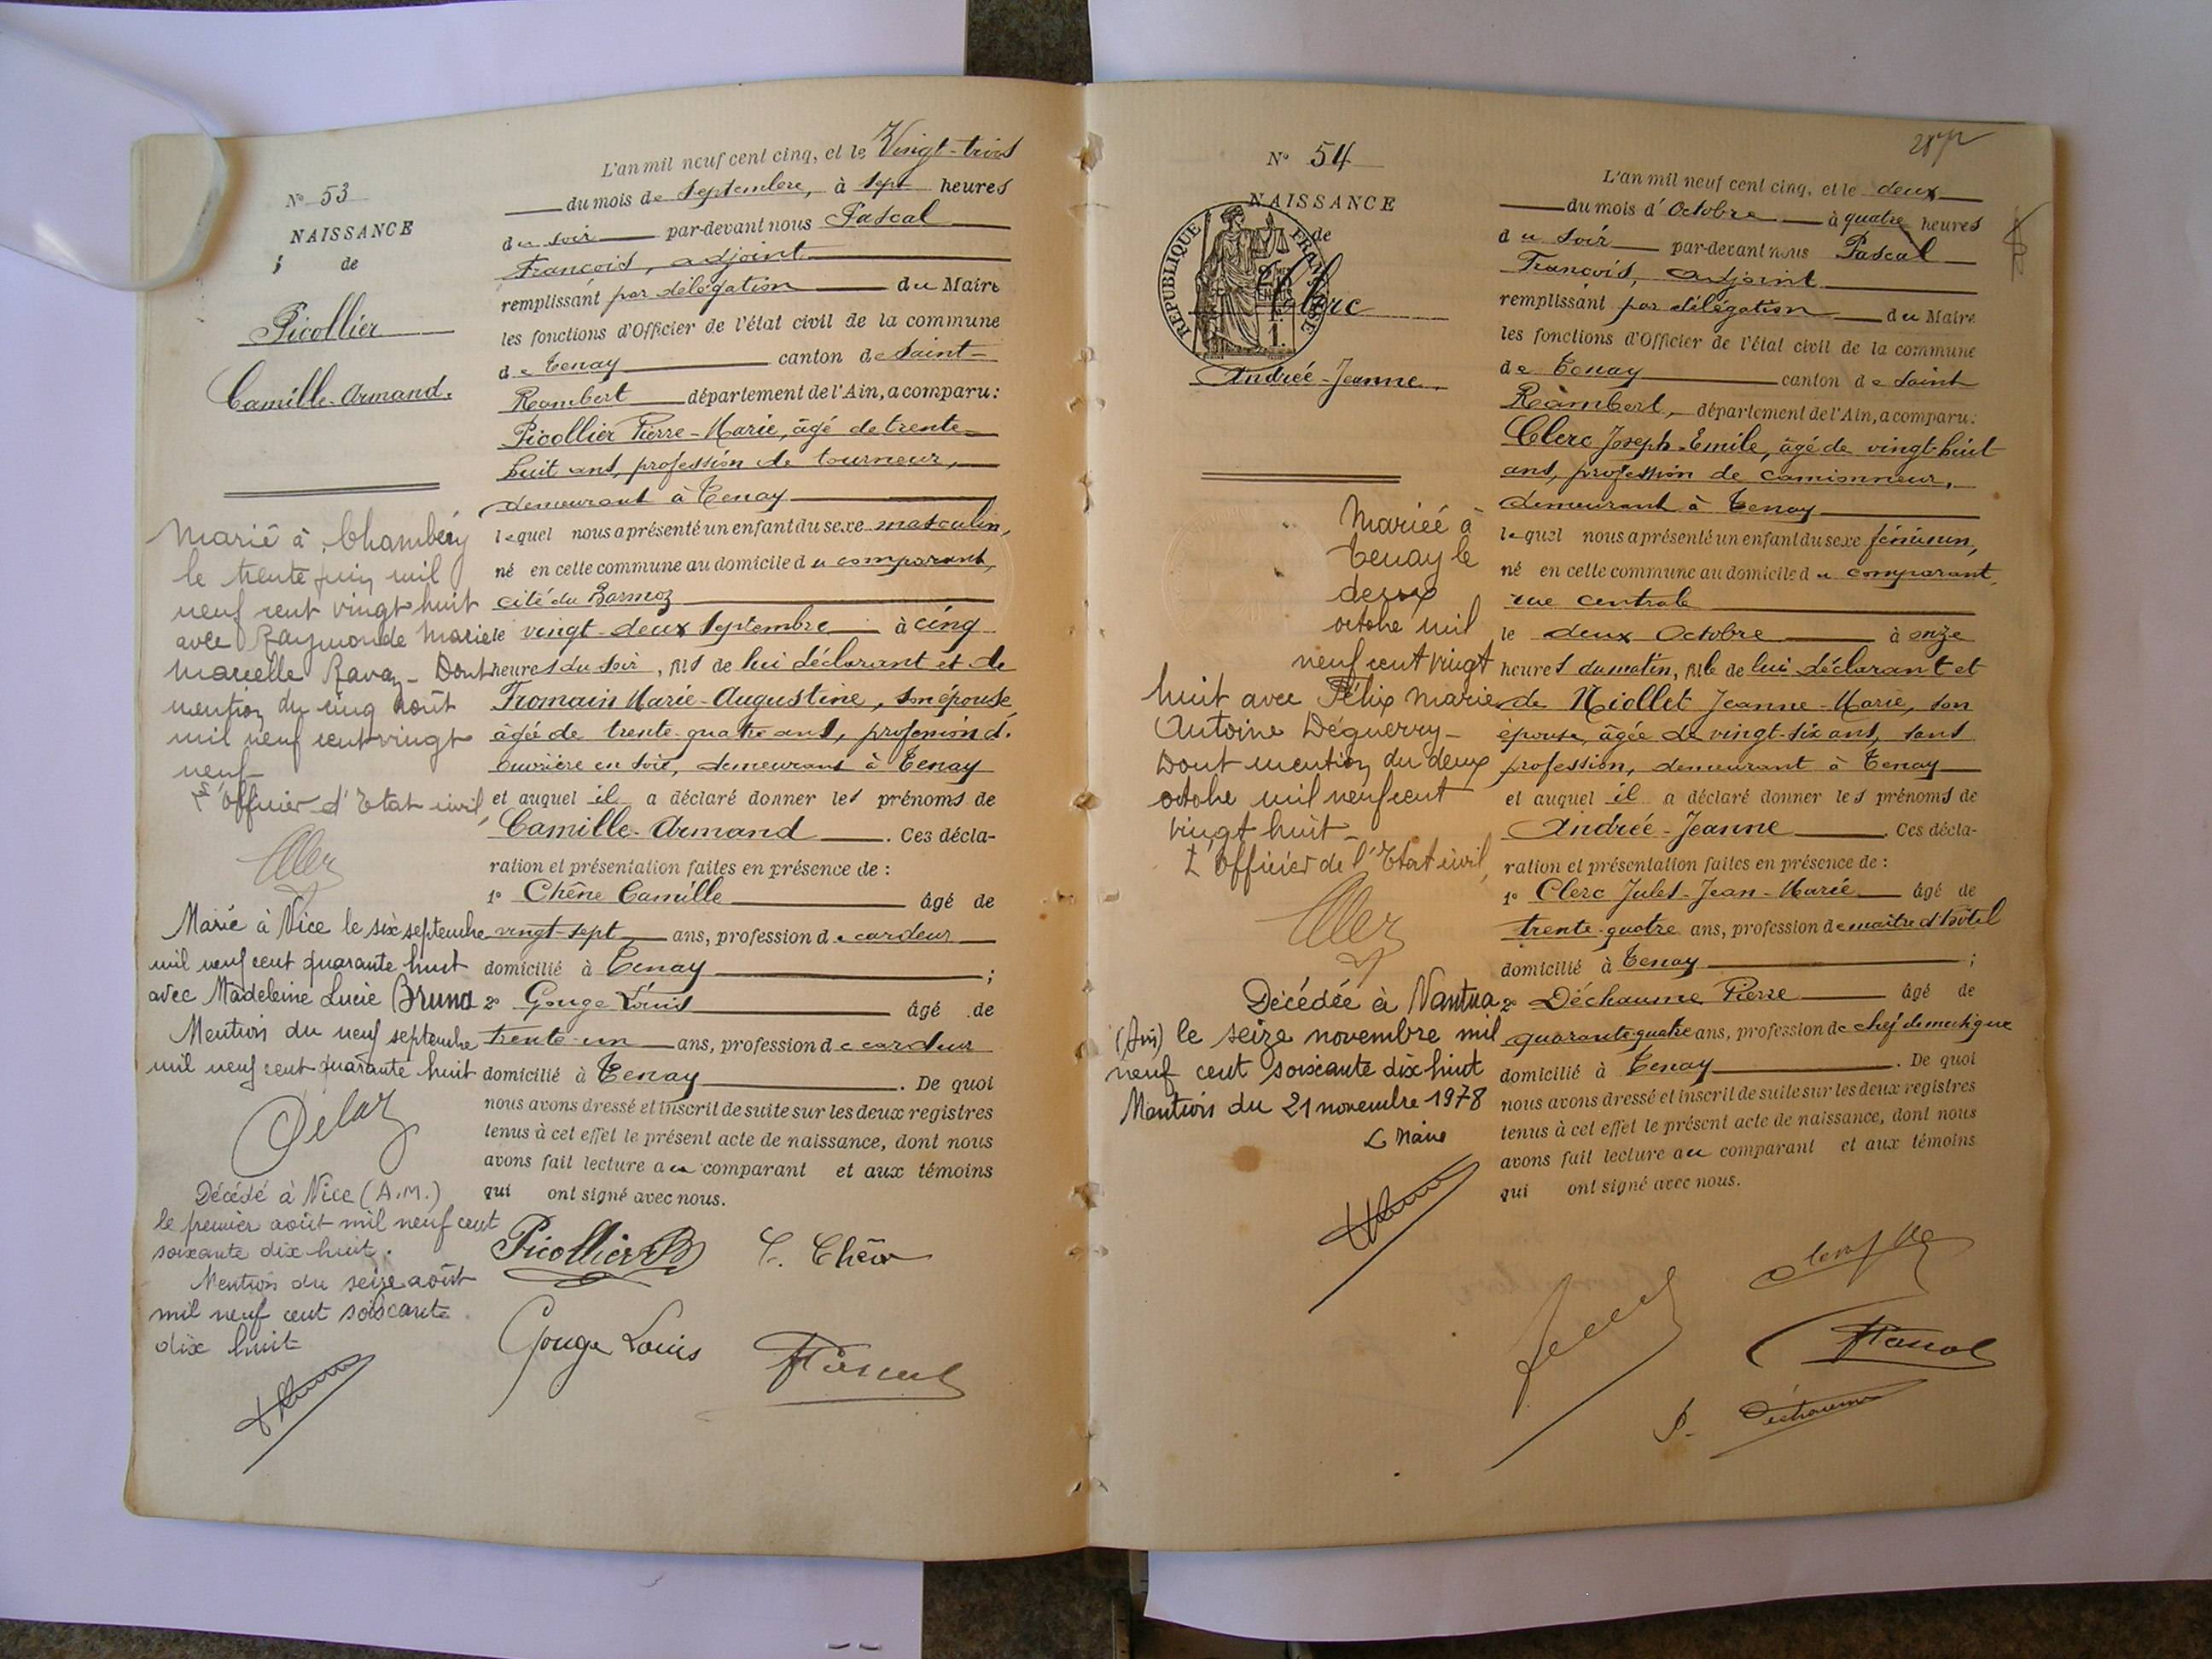 N° 53
NAISSANCE
de
Picollier
Camille-Armand.
Marié à Chambéry
le trente juin mil
neuf cent vingt huit
avec Raymonde Marie
Marcelle Ravaz - Dont
mention du cinq août
mil neuf cent vingt
neuf -
L'officier d'Etat civil,
Marié à Nice le six septembre
mil neuf cent quarante huit
avec Madeleine Lucie Bruna
Mention du neuf septembre
mil neuf cent quarante huit
Décédé à Nice (A.M.)
le premier août mil neuf cent
soixante dix huit.
Mention du seize août
mil neuf cent soixante
dix huit
L'an mil neuf cent cinq, et le Vingt-trois
du mois de Septembre, à sept heures
du soir par-devant nous Pascal
François, adjoint
remplissant par délégation du Maire
les fonctions d'Officier de l'état civil de la commune
de Tenay canton de Saint-
Rambert département de l'Ain, a comparu:
Picollier Pierre-Marie, âgé de trente-
huit ans, profession de tourneur,
demeurant à Tenay
lequel nous a présenté un enfant du sexe masculin,
né en cette commune au domicile du comparant,
cité du Barmoz
le vingt-deux Septembre à cinq
heures du soir, fils de lui déclarant et de
Tromain Marie-Augustine, son épouse,
âgée de trente-quatre ans, profession d.
ouvrière en soie, demeurant à Tenay
et auquel il a déclaré donner les prénoms de
Camille-Armand. Ces décla-
ration et présentation faites en présence de :
1° Chêne Camille âgé de
vingt-sept ans, profession de cardeur
domicilié à Tenay ;
2° Gouge Louis âgé de
trente-un ans, profession de cardeur
domicilié à Tenay. De quoi
nous avons dressé et inscrit de suite sur les deux registres
tenus à cet effet le présent acte de naissance, dont nous
avons fait lecture au comparant et aux témoins
qui ont signé avec nous.
Picollier C. Chêne
Gouge Louis FPascal
N° 54
NAISSANCE
de
REPUBLIQUE FRANÇAISE
Clerc
Andrée-Jeanne.
Mariée à
Tenay le
deux
octobre mil
neuf cent vingt
huit avec Félix Marie
Antoine Déguerry -
Dont mention du deux
octobre mil neuf cent
vingt huit -
L'officier de l'Etat civil,
Décédée à Nantua
(Ain) le seize novembre mil
neuf cent soixante dix huit
Mention du 21 novembre 1978
Le Maire
L'an mil neuf cent cinq, et le deux
du mois d'Octobre à quatre heures
du soir par-devant nous Pascal
François, adjoint
remplissant par délégation du Maire
les fonctions d'Officier de l'état civil de la commune
de Tenay canton de Saint
Rambert, département de l'Ain, a comparu:
Clerc Joseph-Emile, âgé de vingt-huit
ans, profession de camionneur,
demeurant à Tenay
lequel nous a présenté un enfant du sexe féminin,
né en cette commune au domicile du comparant,
rue centrale
le deux Octobre à onze
heures du matin, fille de lui déclarant et
de Niollet Jeanne-Marie, son
épouse, âgée de vingt-six ans, sans
profession, demeurant à Tenay
et auquel il a déclaré donner les prénoms de
Andrée-Jeanne. Ces décla-
ration et présentation faites en présence de :
1° Clerc Jules-Jean-Marie âgé de
trente-quatre ans, profession de maître d'hôtel
domicilié à Tenay ;
2° Déchaume Pierre âgé de
quarante-quatre ans, profession de chef de musique
domicilié à Tenay. De quoi
nous avons dressé et inscrit de suite sur les deux registres
tenus à cet effet le présent acte de naissance, dont nous
avons fait lecture au comparant et aux témoins
qui ont signé avec nous.
FPascal
P. Déchaume